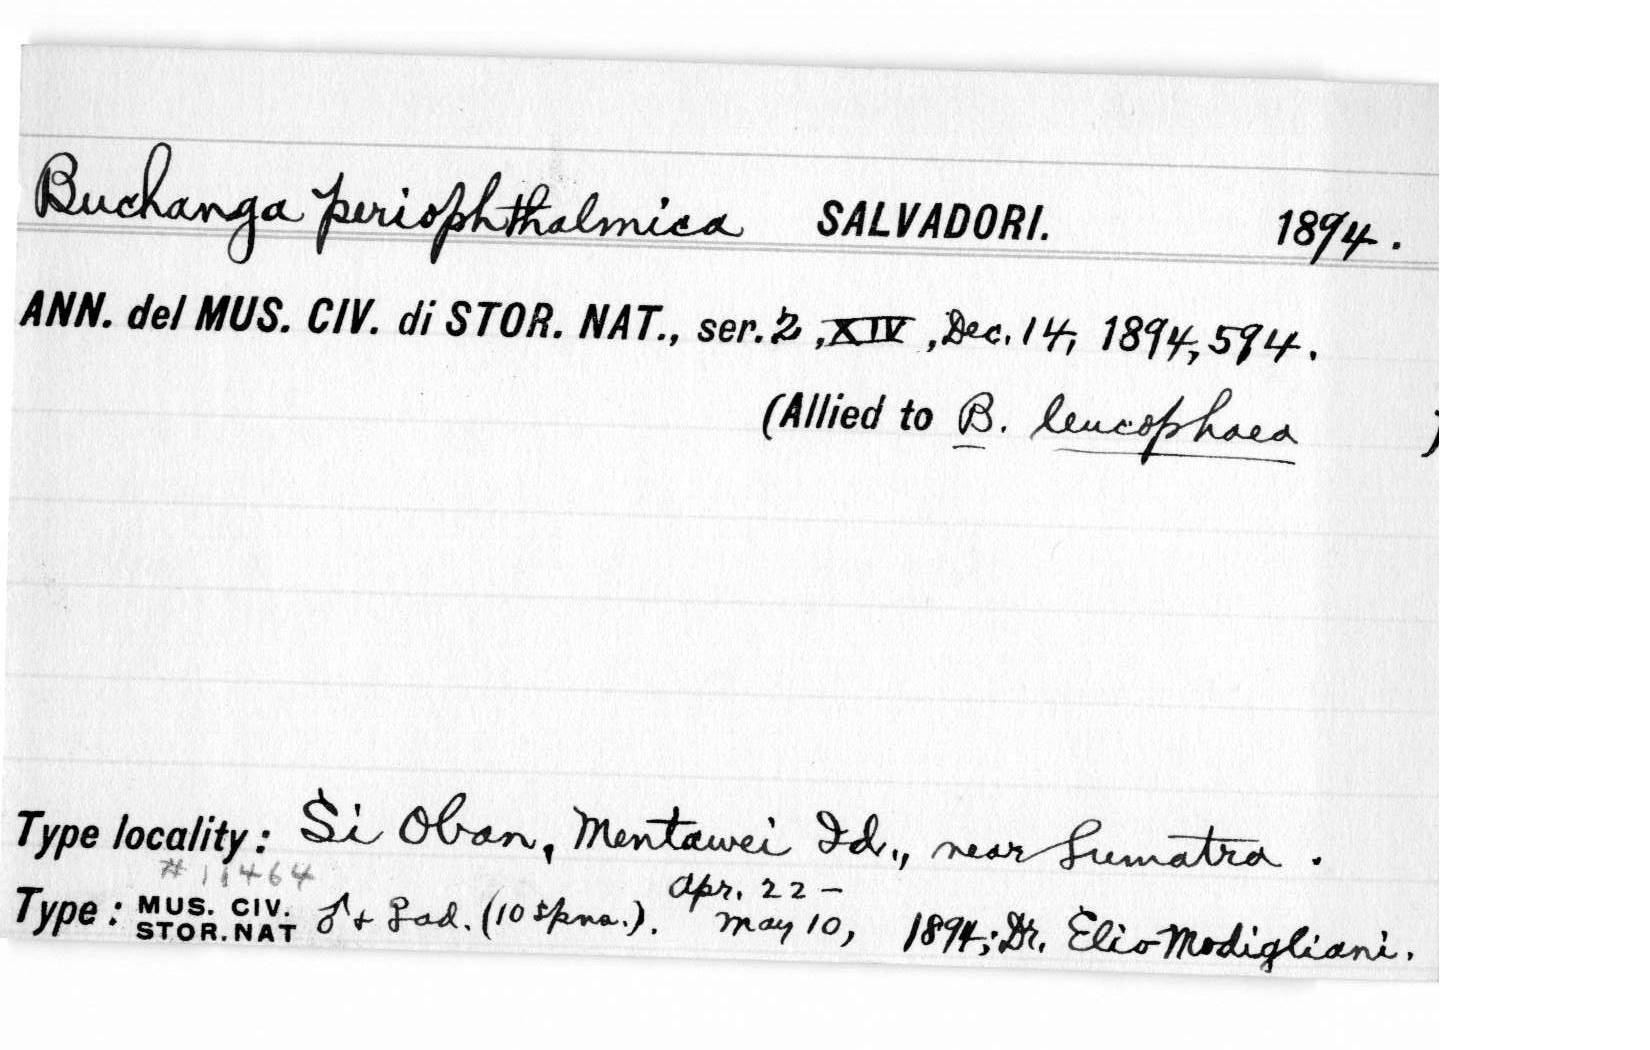 Buchanga periophthalmica SALVADORI. 1894.
ANN. del MUS. CIV. di STOR. NAT., ser. 2, XIV, Dec. 14, 1894, 594.
(Allied to B. leucophaea )
Type locality: Si Oban, Mentawei Id., near Sumatra.
# 11464
Apr. 22 –
Type: MUS. CIV. STOR. NAT ♂ + ♀ ad. (10 spns.). May 10, 1894; Dr. Elio Modigliani.